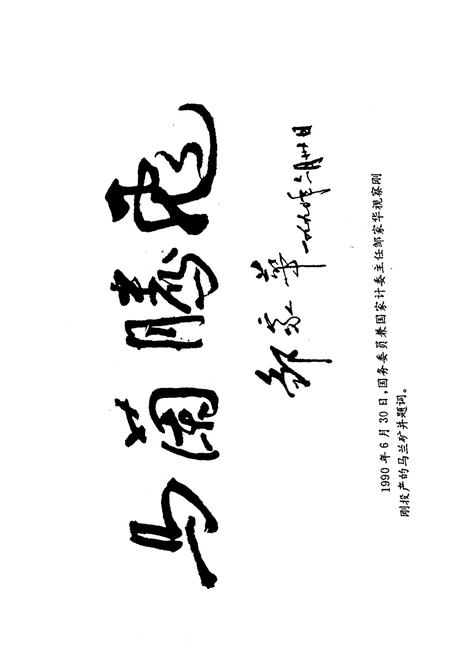 马兰腾飞
邹家华 一九九〇年六月卅日
1990年6月30日,国务委员兼国家计委主任邹家华视察刚
刚投产的马兰矿并题词。